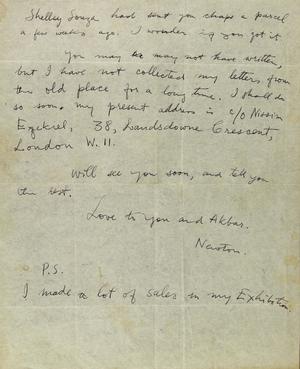 Shelley Souza had sent you chaps a parcel
a few weeks ago. I wonder if you got it
You may or may not have written,
but I have not collected my letters from
the old place for a long time. I shall do
so soon. my present address is c/o Nissim
Ezekiel, 38, Landsdowne Crescent,
London W. 11.
Will see you soon, and tell you
the rest.
Love to you and Akbar.
Newton.
P.S.
I made a lot of sales in my Exhibition.